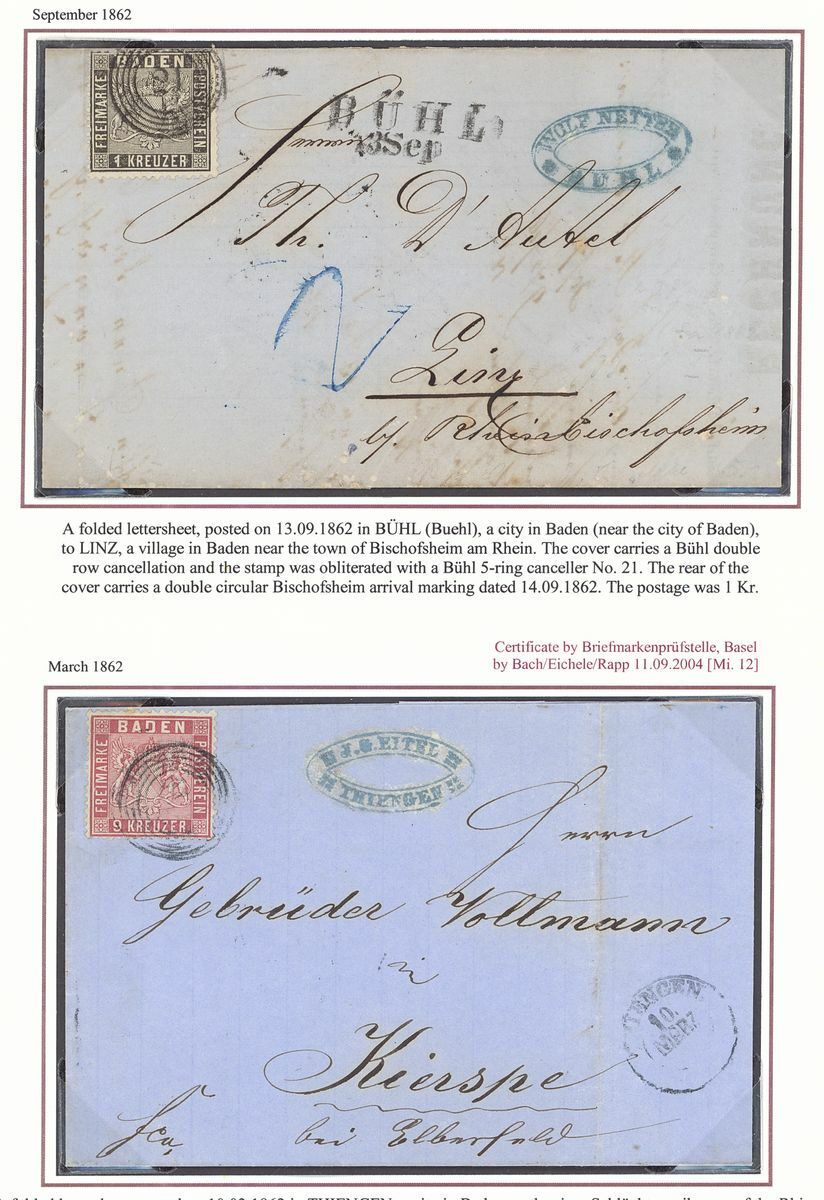 September 1862
BADEN
FREIMARKE
POSTVEREIN
1 KREUZER
BÜHL
13Sep
WOLF NETTER
BUHL
Th. D'Autel
2
Linz
b/. Rheinbischofsheim
A folded lettersheet, posted on 13.09.1862 in BÜHL (Buehl), a city in Baden (near the city of Baden),
to LINZ, a village in Baden near the town of Bischofsheim am Rhein. The cover carries a Bühl double
row cancellation and the stamp was obliterated with a Bühl 5-ring canceller No. 21. The rear of the
cover carries a double circular Bischofsheim arrival marking dated 14.09.1862. The postage was 1 Kr.
Certificate by Briefmarkenprüfstelle, Basel
by Bach/Eichele/Rapp 11.09.2004 [Mi. 12]
March 1862
BADEN
FREIMARKE
POSTVEREIN
9 KREUZER
J. G. EITEL
THIENGEN
Herrn
Gebrüder Vollmann
in
THIENGEN
10.
MERZ
Kierspe
fco,
bei Elberfeld